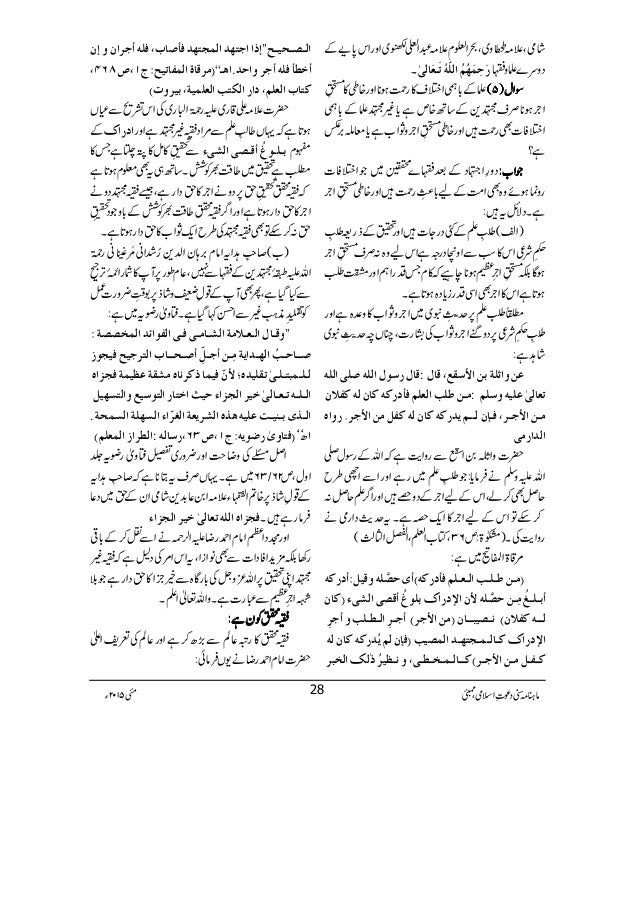 شامی، علامہ طحطاوی، بحر العلوم علامہ عبد العلی لکھنوی اور اس پایے کے
دوسرے علما و فقہا رَحِمَهُمُ اللّٰهُ تَعَالیٰ۔
سوال (۵) علما کے باہمی اختلاف کا رحمت ہونا اور خاطی کا مستحقِ
اجر ہونا صرف مجتہدین کے ساتھ خاص ہے یا غیر مجتہد علما کے باہمی
اختلافات بھی رحمت ہیں اور خاطی مستحقِ اجر و ثواب ہے یا معاملہ برعکس
ہے؟
جواب: دورِ اجتہاد کے بعد فقہاے محققین میں جو اختلافات
رونما ہوئے وہ بھی امت کے لیے باعثِ رحمت ہیں اور خاطی مستحق اجر
ہے۔ دلائل یہ ہیں:
(الف) طلبِ علم کے کئی درجات ہیں اور تحقیق کے ذریعہ طلبِ
حکمِ شرعی اس کا سب سے اونچا درجہ ہے اس لیے وہ نہ صرف مستحقِ اجر
ہوگا بلکہ مستحقِ اجرِ عظیم ہونا چاہیے کہ کام جس قدر اہم اور مشقت طلب
ہوتا ہے اس کا اجر بھی اسی قدر زیادہ ہوتا ہے۔
مطلقاً طلبِ علم پر حدیثِ نبوی میں اجر و ثواب کا وعدہ ہے اور
طلبِ حکمِ شرعی پر دو گنے اجر و ثواب کی بشارت، چناں چہ حدیثِ نبوی
شاہد ہے:
عن واثلة بن الأسقع، قال: قال رسول الله صلى الله
تعالىٰ عليه وسلم: من طلب العلم فأدركه كان له كفلان
من الأجر، فإن لم يدركه كان له كفل من الأجر. رواه
الدارمى
حضرت واثلہ بن اسقع سے روایت ہے کہ اللہ کے رسول صلی
اللہ علیہ وسلم نے فرمایا: جو طلبِ علم میں رہے اور اسے اچھی طرح
حاصل بھی کر لے، اس کے لیے اجر کے دو حصے ہیں اور اگر علم حاصل نہ
کر سکے تو اس کے لیے اجر کا ایک حصہ ہے۔ یہ حدیث دارمی نے
روایت کی۔ (مشکوٰۃ: ص۳۶، کتاب العلم، الفصل الثالث)
مرقاۃ المفاتیح میں ہے:
(من طلب العلم فأدركه) أى حصَّله وقيل: أدركه
أبلغُ من حصَّله لأن الإدراك بلوغُ أقصى الشىء (كان
له كفلان) نصيبان (من الأجر) أجرِ الطلب و أجرِ
الإدراك كالمجتهد المصيب (فإن لم يُدركه كان له
كفل من الأجر) كالمخطى، و نظيرُ ذلك الخبر
الصحيح "إذا اجتهد المجتهد فأصاب، فله أجران و إن
أخطأ فله أجر واحد. اهـ" (مرقاة المفاتيح: ج۱، ص۴۶۸،
كتاب العلم، دار الكتب العلمية، بيروت)
حضرت علامہ علی قاری علیہ رحمۃ الباری کی اس تشریح سے عیاں
ہوتا ہے کہ یہاں طالبِ علم سے مراد فقیہِ غیر مجتہد ہے اور ادراک کے
مفہوم بلوغُ أقصى الشىء سے تحقیقِ کامل کا پتہ چلتا ہے جس کا
مطلب ہے تحقیق میں طاقت بھر کوشش۔ ساتھ ہی یہ بھی معلوم ہوتا ہے
کہ فقیہِ محقق تحقیقِ حق پر دونے اجر کا حق دار ہے، جیسے فقیہِ مجتہد دونے
اجر کا حق دار ہوتا ہے اور اگر فقیہِ محقق طاقت بھر کوشش کے باوجود تحقیقِ
حق نہ کر سکے تو بھی فقیہِ مجتہد کی طرح ایک ثواب کا حق دار ہوتا ہے۔
(ب) صاحبِ ہدایہ امام برہان الدین رُشدانی مَرغِینانی رحمۃ
اللہ علیہ طبقۂ مجتہدین کے فقہا سے نہیں، عام طور پر آپ کا شمار ائمۂ ترجیح
سے کیا گیا ہے، پھر بھی آپ کے قولِ ضعیف و شاذ پر بوقتِ ضرورت عمل
کو تقلیدِ مذہبِ غیر سے احسن کہا گیا ہے۔ فتاویٰ رضویہ میں ہے:
"وقال العلامة الشامى فى الفوائد المخصصة:
صاحبُ الهداية مِن أجلّ أصحاب الترجيح فيجوز
للمبتلىٰ تقليده؛ لأنّ فيما ذكرناه مشقة عظيمة فجزاه
اللّٰه تعالىٰ خير الجزاء حيث اختار التوسيع والتسهيل
الذى بنيت عليه هذه الشريعة الغرّاء السهلة السمحة.
اهـ" (فتاوىٰ رضويه: ج۱، ص۶۳، رساله: الطراز المعلم)
اصل مسئلے کی وضاحت اور ضروری تفصیل فتاویٰ رضویہ جلد
اول، ص۶۲/۶۳ میں ہے۔ یہاں صرف یہ بتانا ہے کہ صاحبِ ہدایہ
کے قولِ شاذ پر خاتم الفقہاء علامہ ابن عابدین شامی ان کے حق میں دعا
فرما رہے ہیں۔ فجزاه الله تعالىٰ خير الجزاء
اور مجددِ اعظم امام احمد رضا علیہ الرحمہ نے اسے نقل کر کے باقی
رکھا بلکہ مزید افادات سے بھی نوازا، یہ اس امر کی دلیل ہے کہ فقیہِ غیر
مجتہد اپنی تحقیق پر اللہ عز وجل کی بارگاہ سے خیرِ جزا کا حق دار ہے جو بلا
شبہہ اجرِ عظیم سے عبارت ہے۔ واللہ تعالیٰ اعلم۔
فقیہِ محقق کون ہے:
فقیہِ محقق کا رتبہ عالم سے بڑھ کر ہے اور عالم کی تعریف اعلیٰ
حضرت امام احمد رضا نے یوں فرمائی:
ماہنامہ سنی دعوتِ اسلامی، ممبئی
28
مئی ۲۰۱۵ء